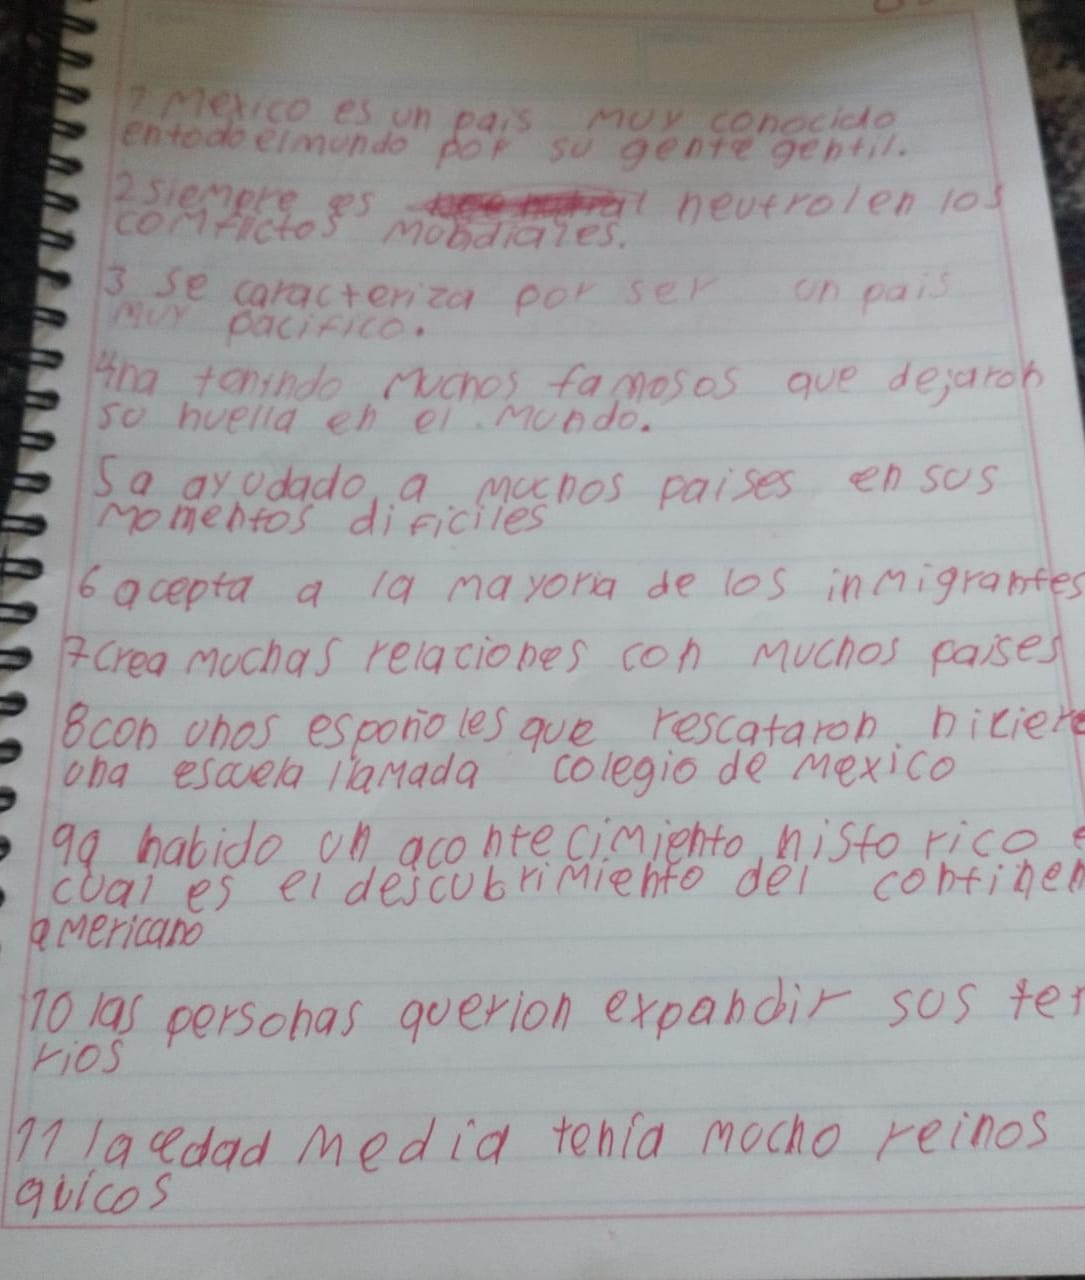 1 Mexico es un pais muy conocido
entodo elmundo por su gente gentil.
2 siempre es neutrolen los
comfictos mondiales.
3 se caracteriza por ser un pais
muy pacifico.
4ha tenindo muchos famosos que dejaron
su huella en el mundo.
5a ayudado a muchos paises en sus
momentos dificiles
6 acepta a la mayoria de los inmigrantes
7crea muchas relaciones con muchos paises
8con unos espoñoles que rescataron hiciero
una escuela llamada colegio de mexico
9a habido un acontecimiento historico e
cual es el descubrimiento del continen
americano
10 las personas querion expandir sus ter
rios
11 la edad media tenía mucho reinos
quicos